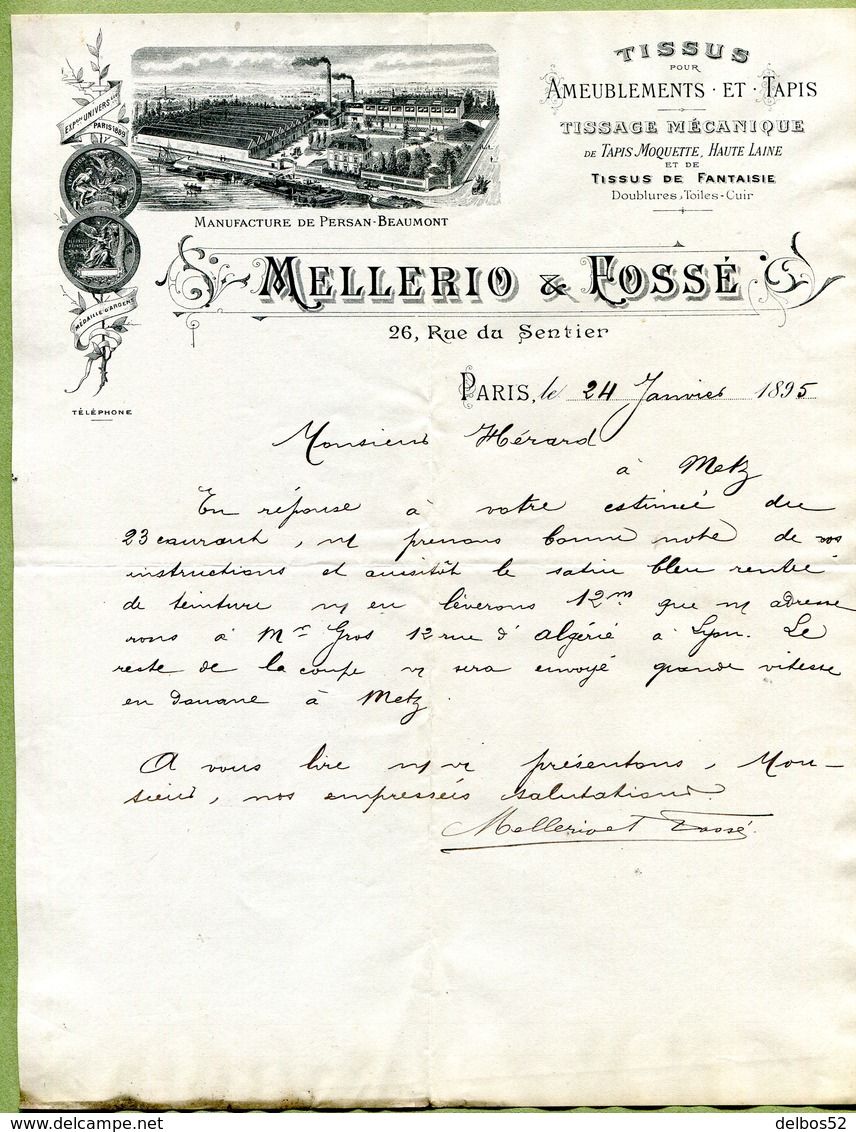 EXPON UNIVERSLLE
PARIS 1889
RÉPUBLIQUE FRANÇAISE
MÉDAILLE D'ARGENT
TÉLÉPHONE
MANUFACTURE DE PERSAN-BEAUMONT
TISSUS
POUR
AMEUBLEMENTS · ET · TAPIS
TISSAGE MÉCANIQUE
DE TAPIS MOQUETTE, HAUTE LAINE
ET DE
TISSUS DE FANTAISIE
Doublures, Toiles-Cuir
MELLERIO & FOSSÉ
26, Rue du Sentier
PARIS, le 24 Janvier 1895
Monsieur Hérard
à Metz
En réponse à votre estimée du
23 courant, ns prenons bonne note de vos
instructions et aussitôt le satin bleu rentré
de teinture ns en lèverons 12m que ns adresse
rons à Mr Gros 12 rue d'algérie à Lyon. Le
reste de la coupe vs sera envoyé grande vitesse
en douane à Metz.
A vous lire ns vs présentons, Mon-
sieur, nos empressées salutations.
Mellerio et Fossé
delbos52